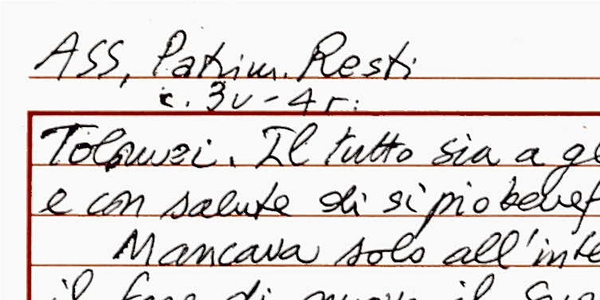 ASS, Patrim. Resti
c. 3v-4r:
Tolomei. Il tutto sia a gl
e con salute di sì pio benef
Mancava solo all'inte
il fare di nuovo il